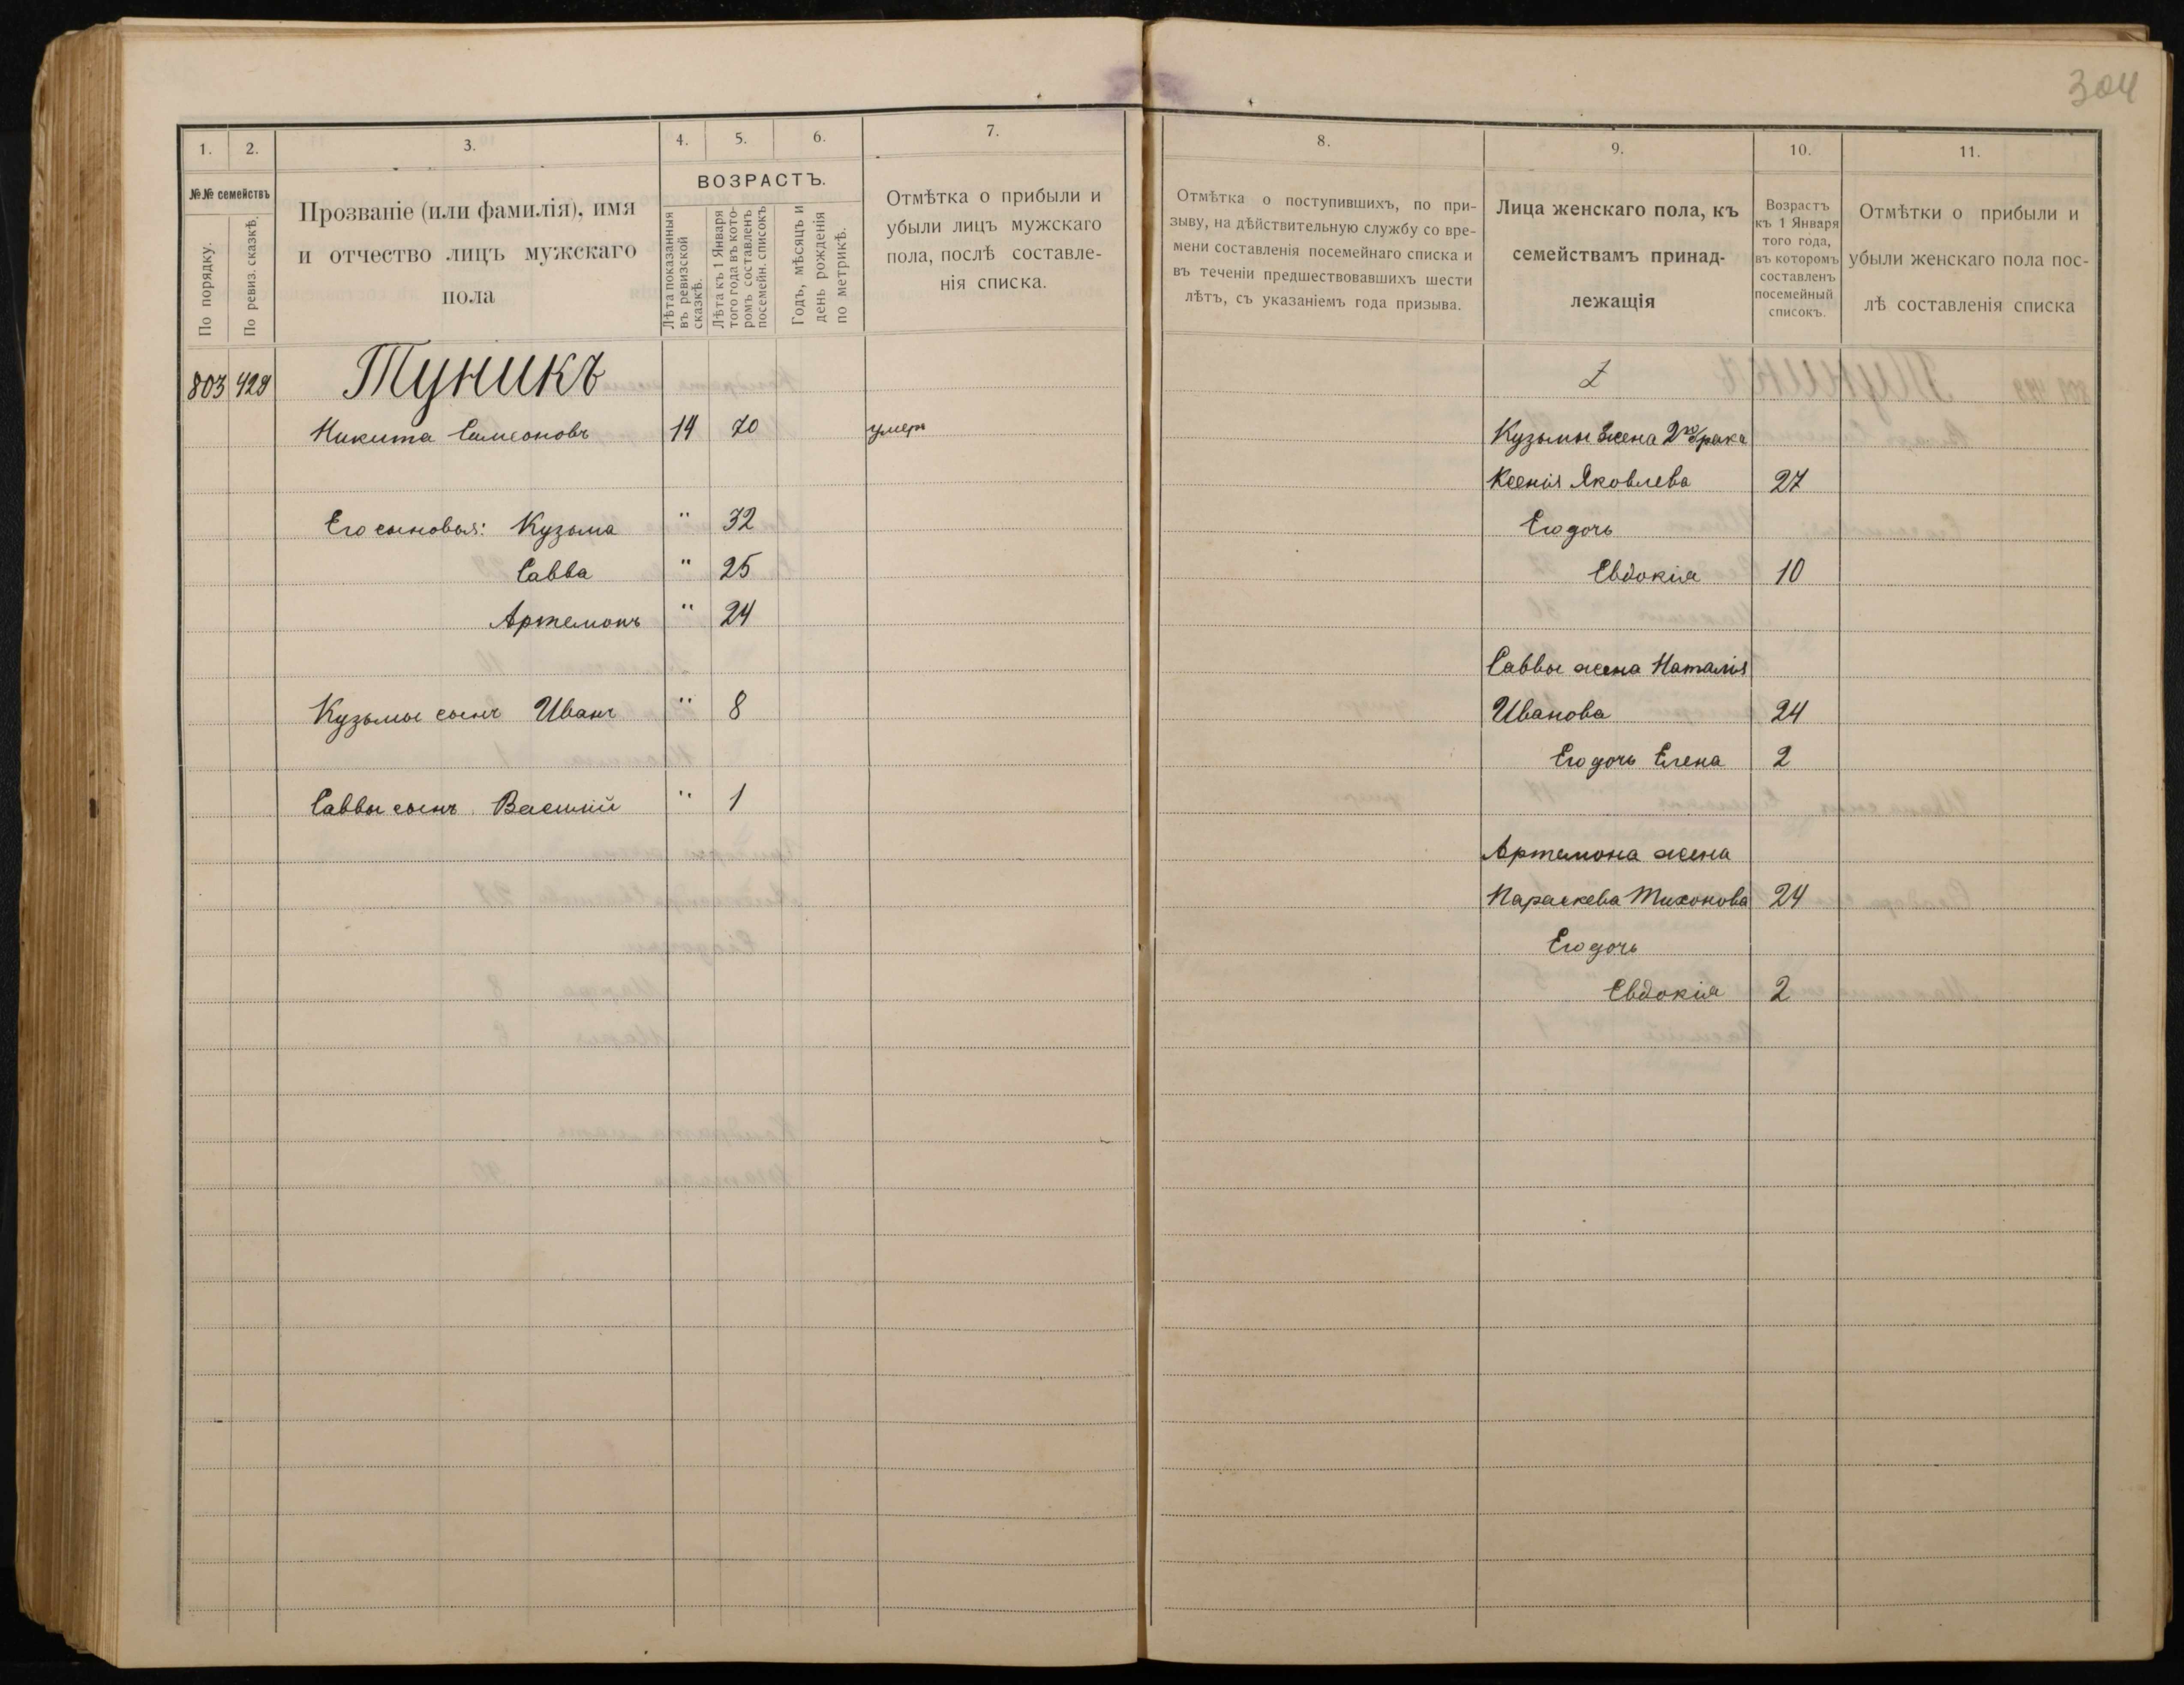 304
1. 2. 3. 4. 5. 6. 7.
№№ семействъ
По порядку.
По ревиз. сказкѣ.
Прозваніе (или фамилія), имя
и отчество лицъ мужскаго
пола
ВОЗРАСТЪ.
Лѣта показанныя
въ ревизской
сказкѣ.
Лѣта къ 1 Января
того года въ кото-
ромъ составленъ
посемейн. списокъ
Годъ, мѣсяцъ и
день рожденія
по метрикѣ.
Отмѣтка о прибыли и
убыли лицъ мужскаго
пола, послѣ составле-
нія списка.
803 429 Туникъ
Никита Симеоновъ 14 70 умеръ
Его сыновья: Кузьма " 32
Савва " 25
Артемонъ " 24
Кузьмы сынъ Иванъ " 8
Саввы сынъ Василий " 1
8. 9. 10. 11.
Отмѣтка о поступившихъ, по при-
зыву, на дѣйствительную службу со вре-
мени составленія посемейнаго списка и
въ теченіи предшествовавшихъ шести
лѣтъ, съ указаніемъ года призыва.
Лица женскаго пола, къ
семействамъ принад-
лежащія
Возрастъ
къ 1 Января
того года,
въ которомъ
составленъ
посемейный
списокъ.
Отмѣтки о прибыли и
убыли женскаго пола пос-
лѣ составленія списка
Кузьмы жена 2го брака
Ксенія Яковлева 27
Его дочь
Евдокія 10
Саввы жена Наталія
Иванова 24
Его дочь Елена 2
Артемона жена
Параскева Тихонова 24
Его дочь
Евдокія 2